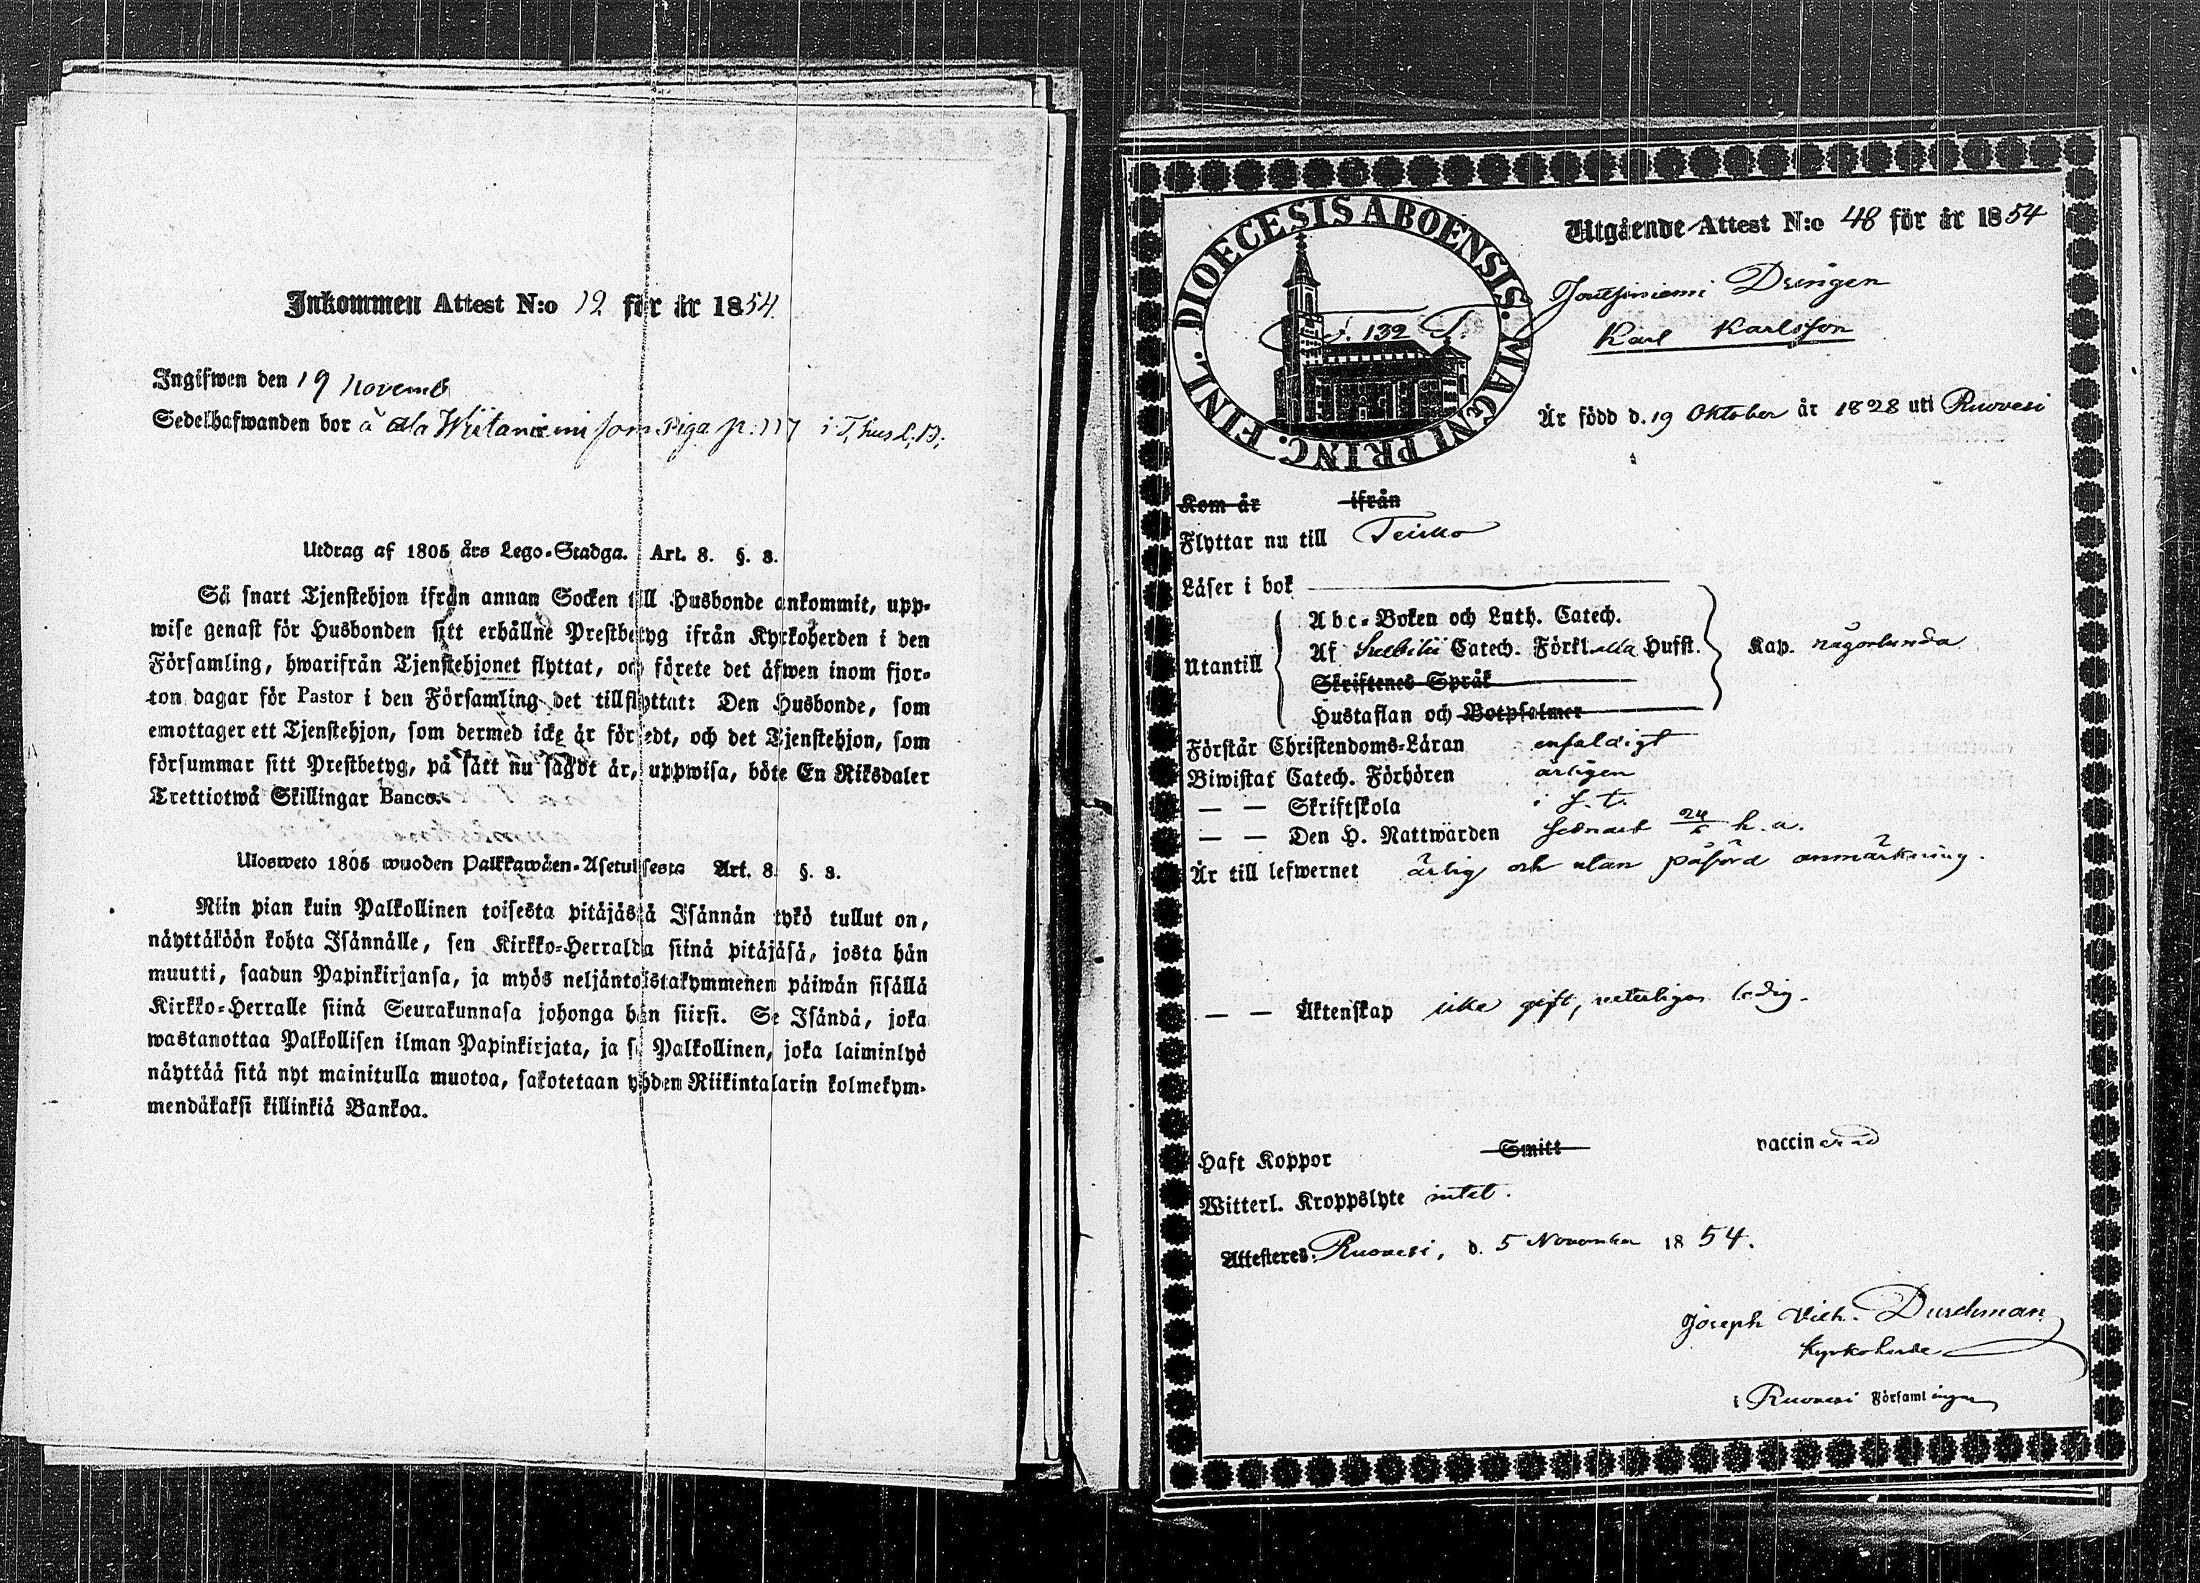 Inkommen Attest N:o 12 för år 1854.
Ingifwen den 19 Novemb
Sedelhafwanden bor å Ala Wiitaniemi som Piga p. 117 i T,
Utdrag af 1805 års Lego-Stadga. Art. 8. §. 8.
Så snart Tjenstehjon ifrån annan Socken till Husbonde ankommit, upp-
wise genast för Husbonden sitt erhållne Prestbetyg ifrån Kyrkoherden i den
Församling, hwarifrån Tjenstehjonet flyttat, och förete det äfwen inom fjor-
ton dagar för Pastor i den Församling det tillflyttat: Den Husbonde, som
emottager ett Tjenstehjon, som dermed icke är försedt, och det Tjenstehjon, som
försummar sitt Prestbetyg, på sätt nu sagdt är, uppwisa, böte En Riksdaler
Trettiotwå Skillingar Banco.
Ulosweto 1805 wuoden Palkkawäen-Asetuksesta Art. 8. §. 8.
Niin pian kuin Palkollinen toisesta pitäjästä Isännän tykö tullut on,
näyttäköön kohta Isännälle, sen Kirkko-Herralda siinä pitäjäsä, josta hän
muutti, saadun Papinkirjansa, ja myös neljäntoistakymmenen päiwän sisällä
Kirkko-Herralle siinä Seurakunnasa johonga hän siirsi. Se Isändä, joka
wastanottaa Palkollisen ilman Papinkirjata, ja se Palkollinen, joka laiminlyö
näyttää sitä nyt mainitulla muotoa, sakotetaan yhden Riikintalarin kolmekym-
mendäkaksi killinkiä Bankoa.
DIOECESIS ABOENSIS. MAGNI PRINC. FINL.
132 T.
Utgående Attest N:o 48 för år 1854
Drängen
Karl Karlsson
Är född d. 19 Oktober år 1828 uti Ruovesi
Kom år ifrån
Flyttar nu till Teisko
Läser i bok
Utantill
Abc-Boken och Luth. Catech.
Af Svebilii Catech. Förkl. alla Hufst.
Skriftenes Språk
Hustaflan och Botpsalmer
Kap. någorlunda
Förstår Christendoms-Läran enfaldigt
Biwistat Catech. Förhören årligen
— — Skriftskola i s. t.
— — Den H. Nattwarden sednast 24/6 h. a.
Är till lefwernet ärlig och utan påförd anmärkning.
— — Äktenskap icke gift, weterligen ledig.
Haft Koppor Smitt vaccinerad
Witterl. Kroppslyte intet.
Attesteres: Ruovesi, d. 5 November 1854.
Joseph Vilh. Durchman
Kyrkoherde
i Ruovesi Församlingen